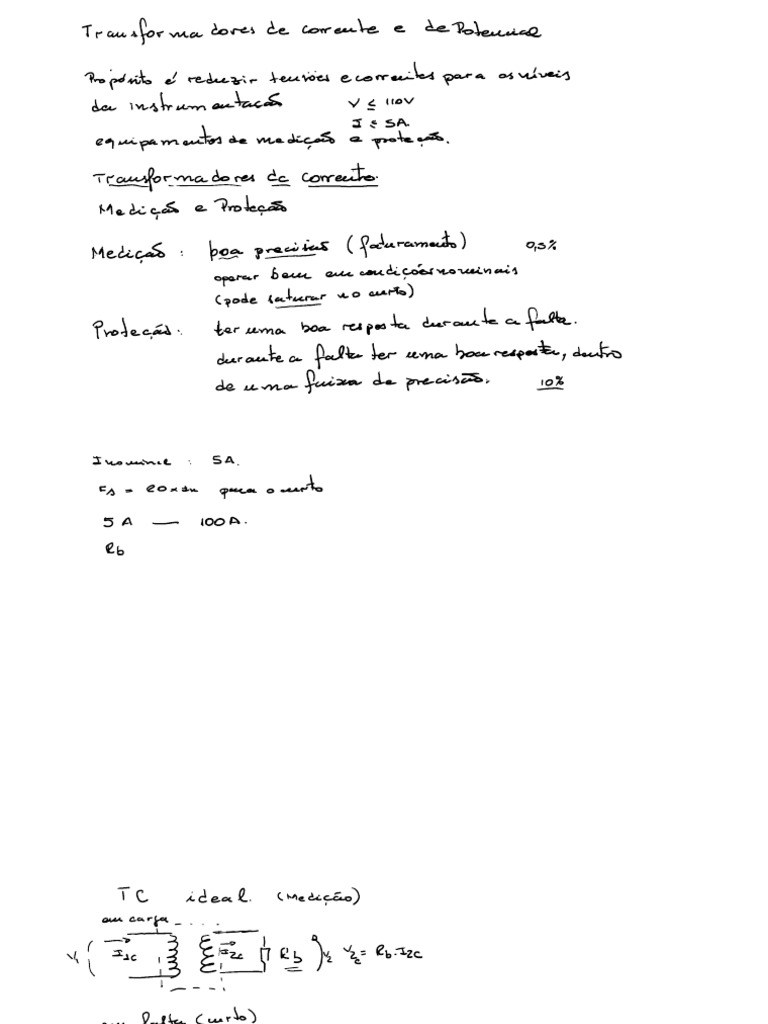 Transformadores de corrente e de Potencial
Propósito é reduzir tensões e correntes para os níveis
da instrumentação V ≤ 110V
I ≤ 5A.
equipamentos de medição e proteção.
Transformadores de corrente.
Medição e Proteção
Medição: boa precisão (faturamento) 0,5%
operar bem em condições nominais
(pode saturar no curto)
Proteção: ter uma boa resposta durante a falta.
durante a falta ter uma boa resposta, dentro
de uma faixa de precisão. 10%
: 5A.
= 20×In para o curto
5A — 100A.
Rb
TC ideal. (Medição)
em carga
V1 I1c I2c Rb V2 V2c = Rb.I2c
em falta (curto)